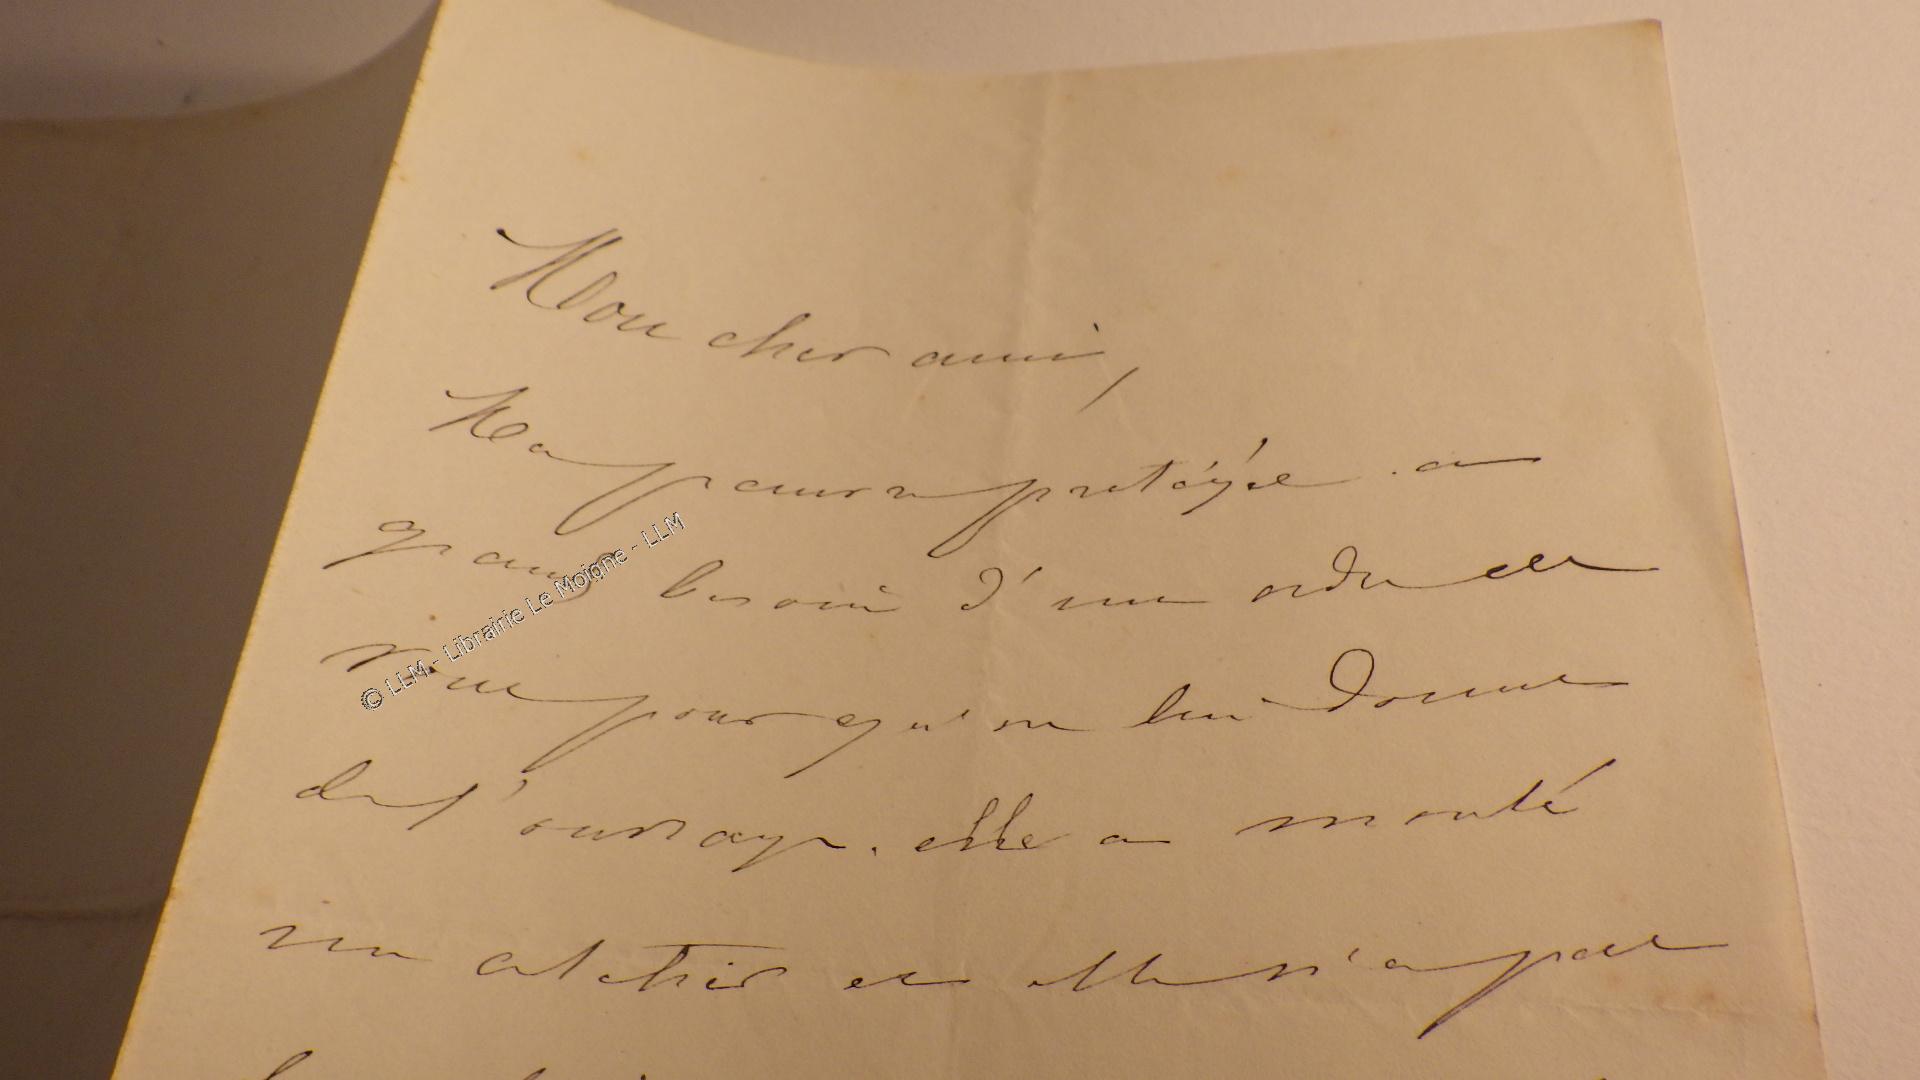 Mon cher ami,
Ma pauvre protégée a
grand besoin d'un ordre de
vous pour qu'on lui donne
de l'ouvrage. elle a monté
un atelier et elle n'a pas
© LLM - Librairie Le Moigne - LLM